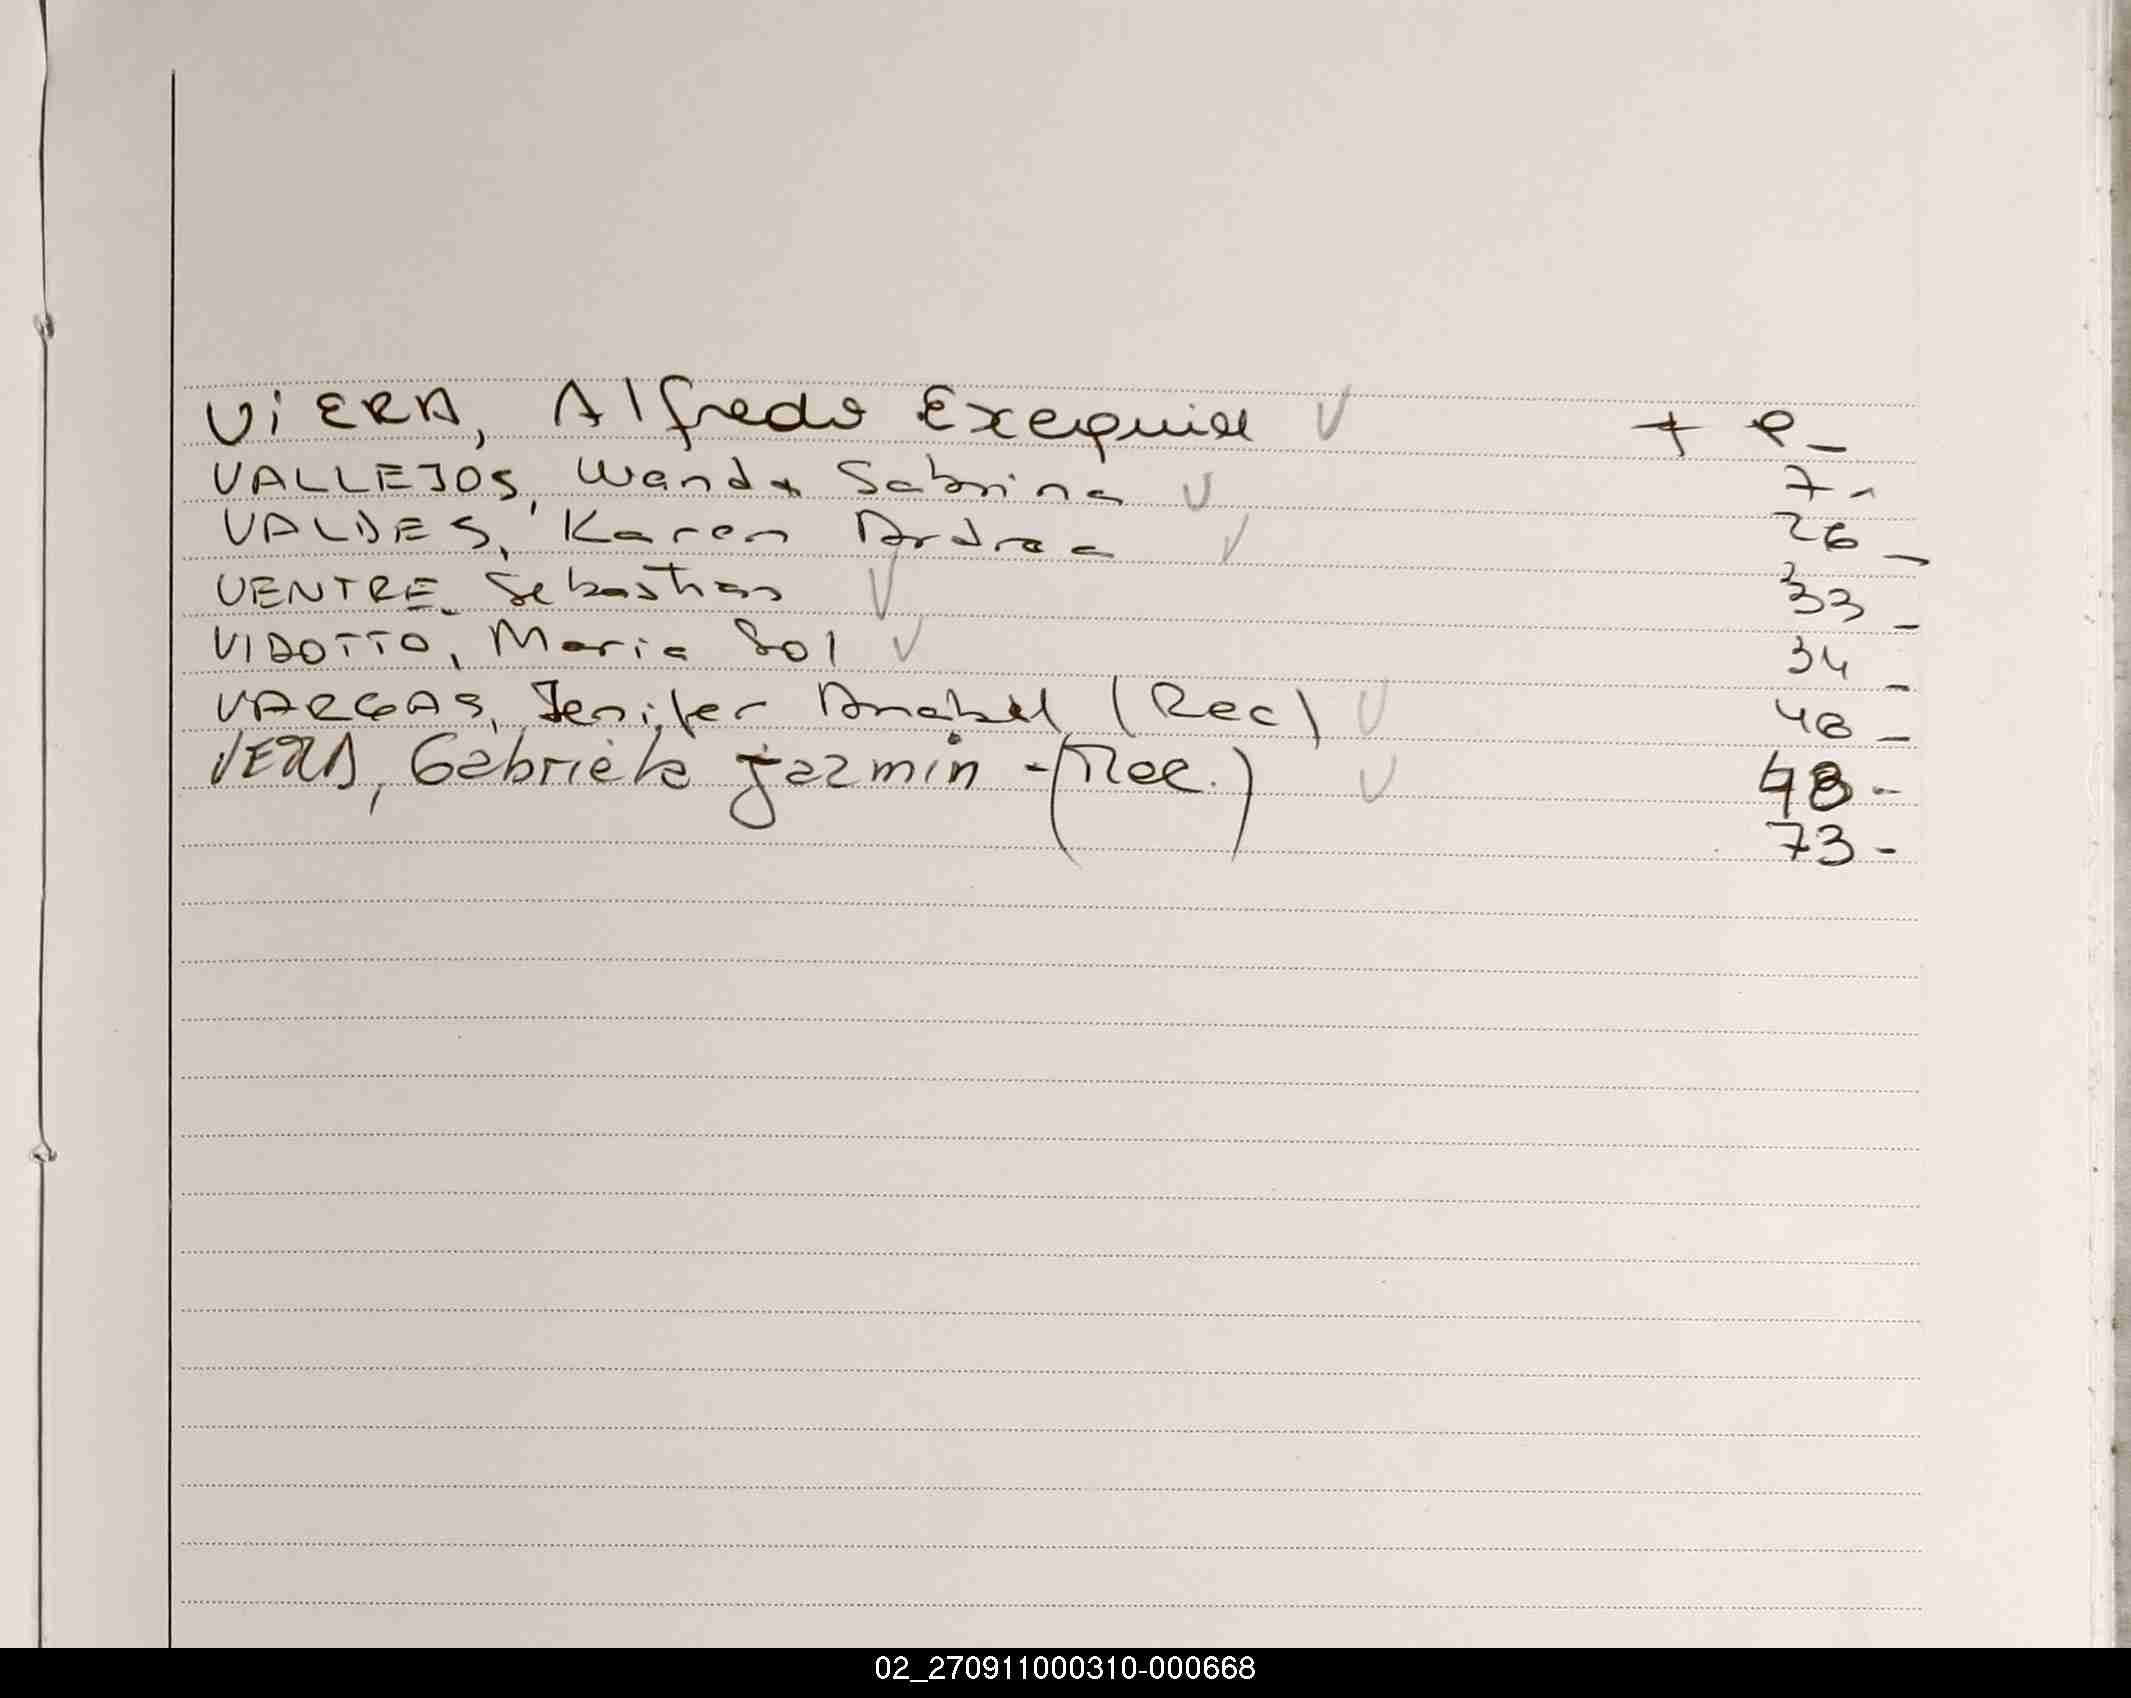 ViERA, Alfredo Exequiel √ + P_
VALLEJOS, Wanda Sabrina √ 7-
VALDES, Karen Andrea √ 26_
VENTRE, Sebastian √ 33_
VIDOTTO, Maria Sol √ 34_
VARGAS, Jenifer Anabel (Rec) √ 48_
VERA, Gabriela jazmin - (Rec.) √ 48-
73-
02_270911000310-000668